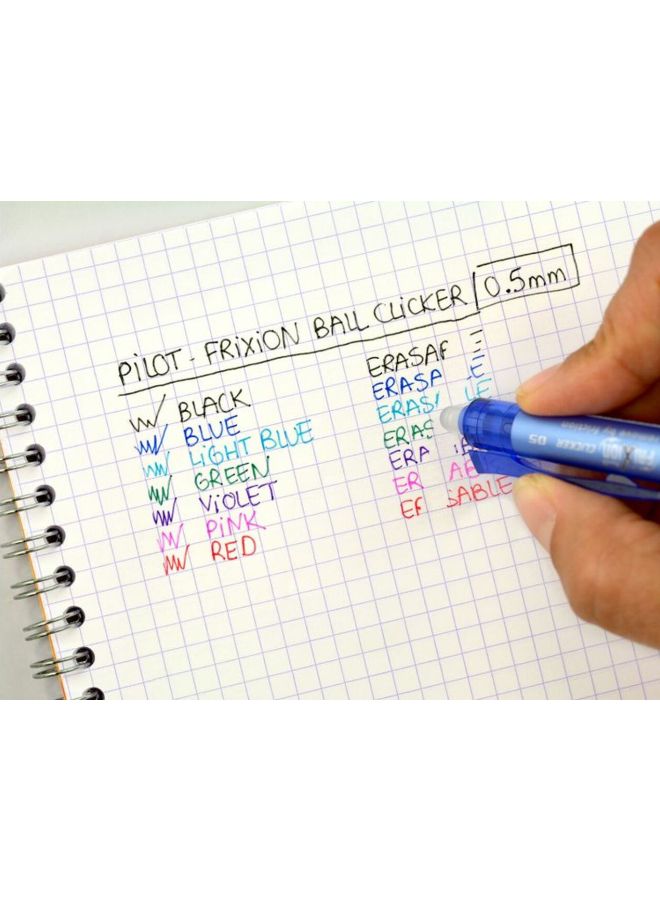 PiLOT - FRiXiON BALL CLiCKER 0.5mm
BLACK
BLUE
LiGHT BLUE
GREEN
ViOLET
PiNK
RED
ERASA E
ERASA LE
ERAS
ERA
ER AB
ER SABLE
CLICKER 05